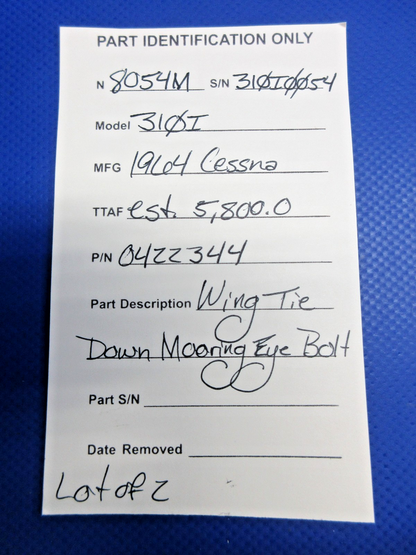 PART IDENTIFICATION ONLY
N 8054M S/N 310I0054
Model 310I
MFG 1964 Cessna
TTAF est. 5,800.0
P/N 0422344
Part Description Wing Tie
Down Mooring Eye Bolt
Part S/N
Date Removed
Lot of 2